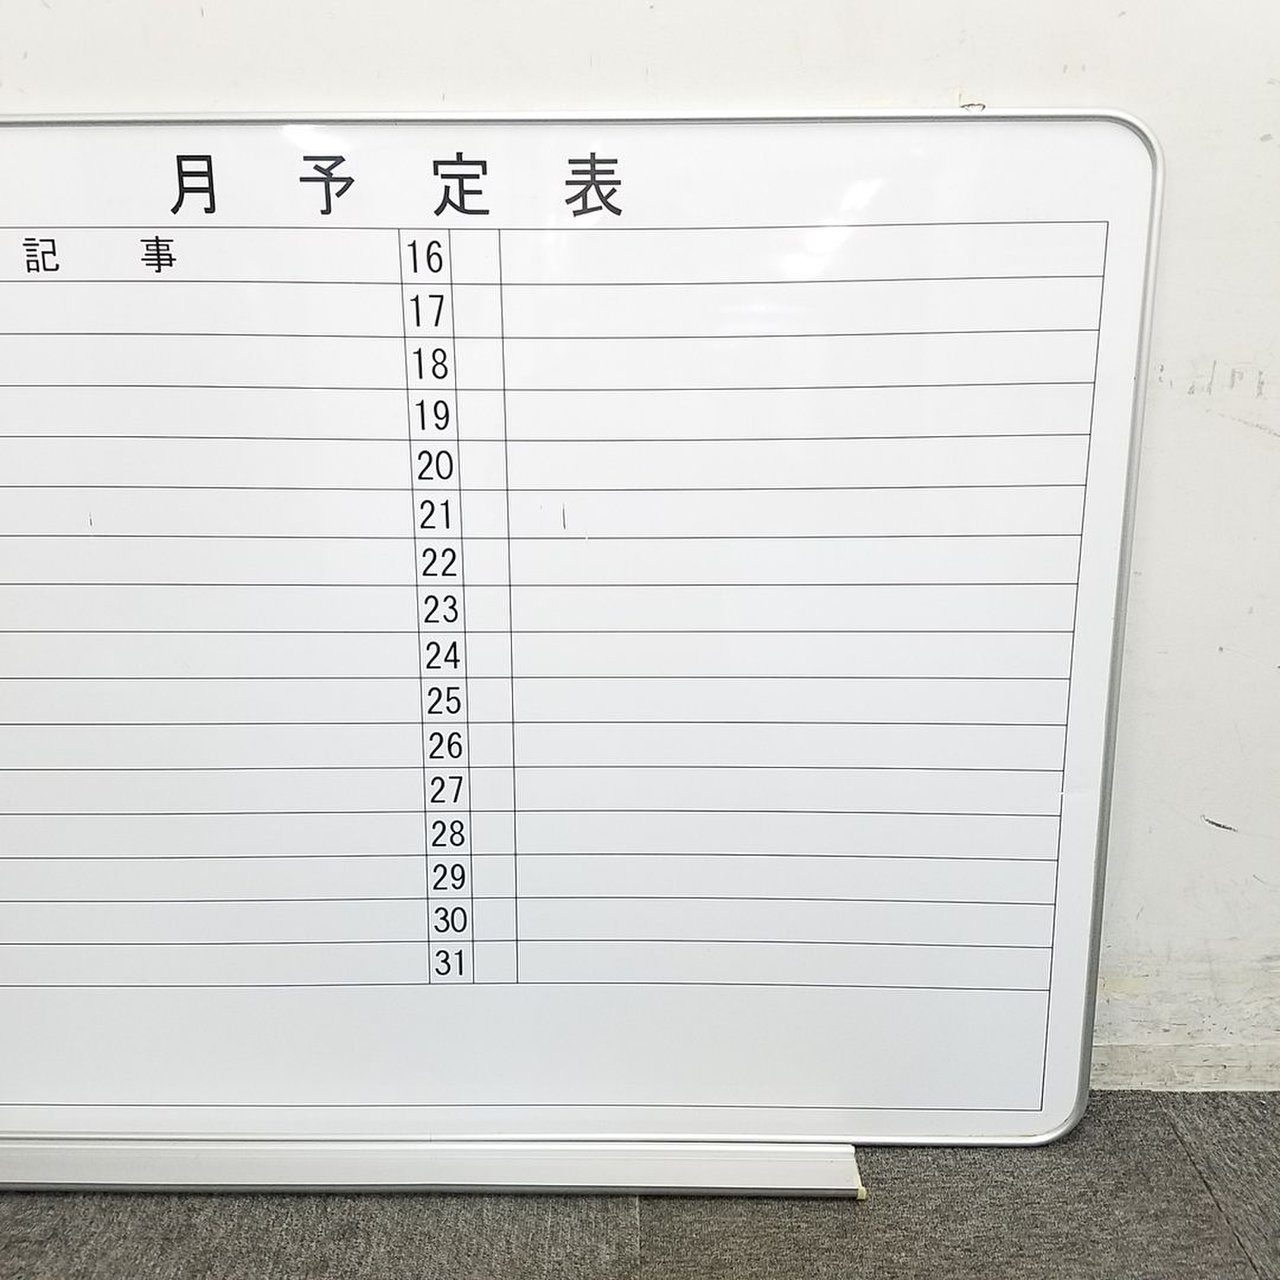 月予定表
記事 16
17
18
19
20
21
22
23
24
25
26
27
28
29
30
31